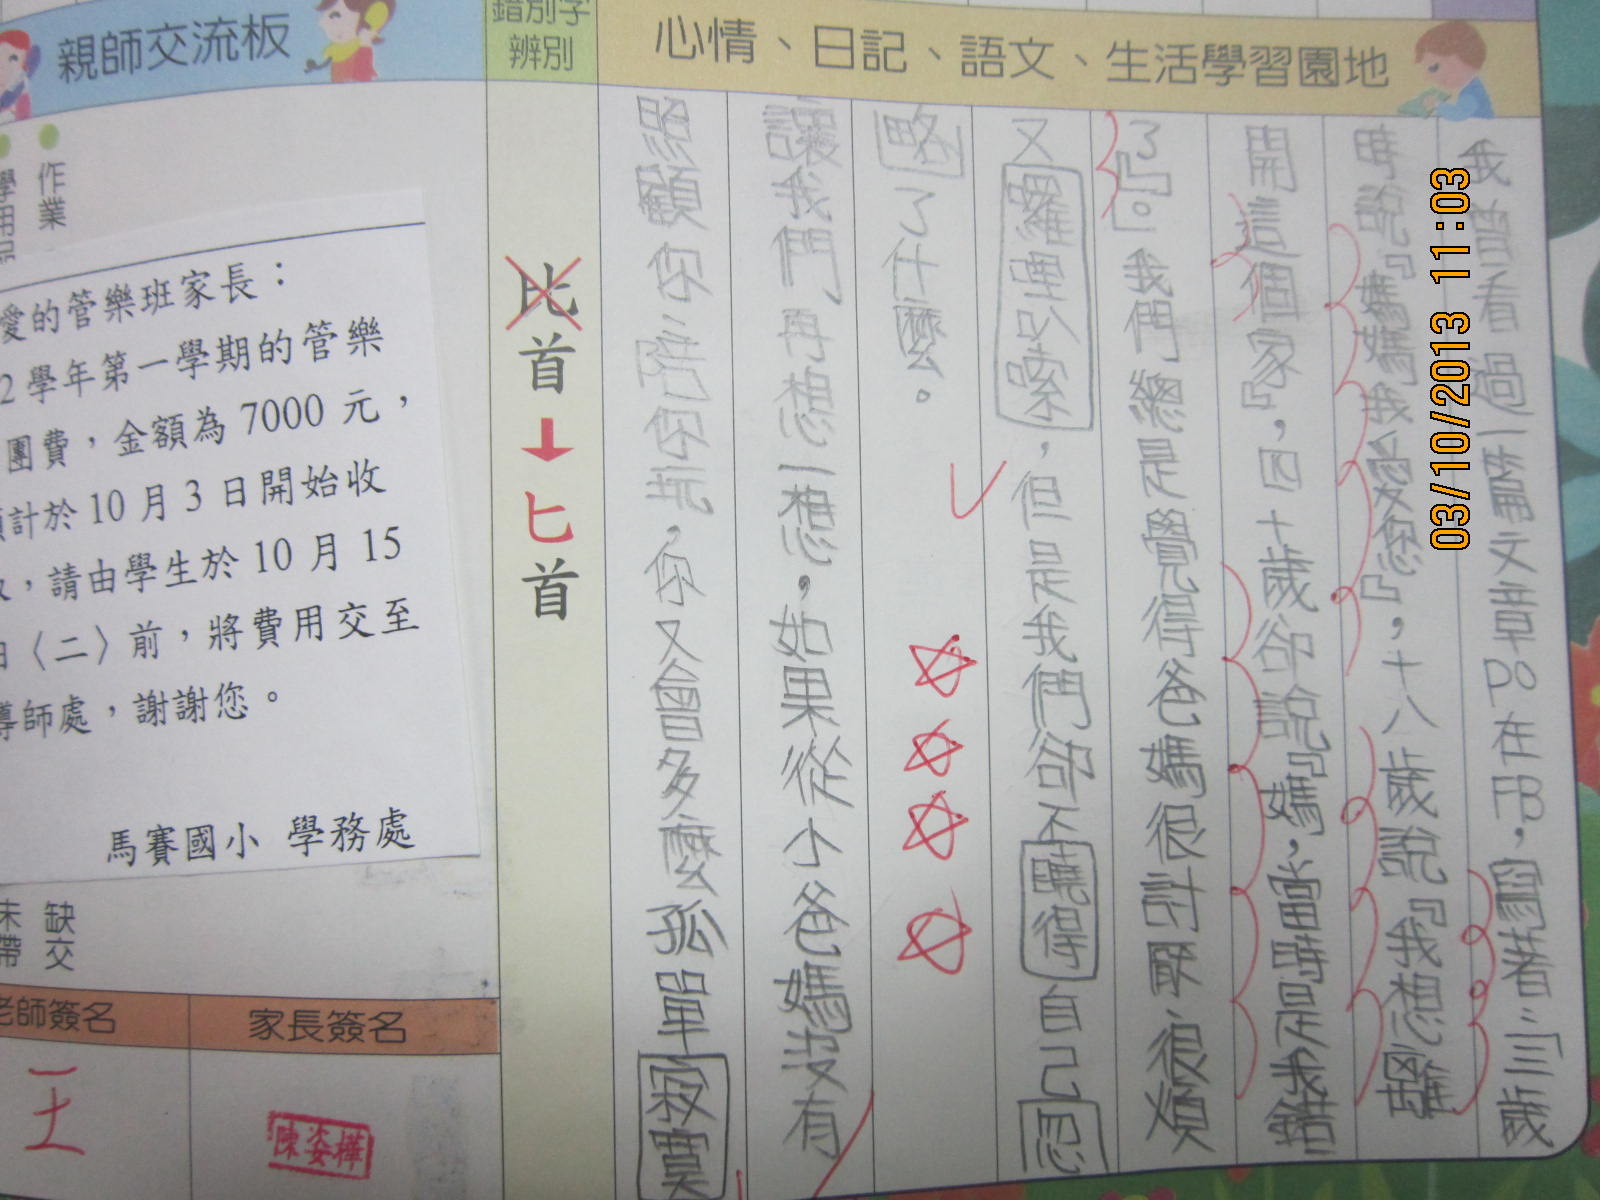 親師交流板
錯別字
辨別
心情、日記、語文、生活學習園地
作業
學用品
愛的管樂班家長：
2學年第一學期的管樂
團費，金額為7000元，
計於10月3日開始收
，請由學生於10月15
日〈二〉前，將費用交至
導師處，謝謝您。
馬賽國小 學務處
缺交
未帶
老師簽名
家長簽名
王
陳姿樺
比首
↓
匕首
我曾看過一篇文章PO在FB，寫著:『三歲
時說『媽媽我愛您』，十八歲說『我想離
開這個家』，四十歲卻說『媽，當時是我錯
了』。我們總是覺得爸媽很討厭、很煩
又囉哩叭嗦，但是我們卻不曉得自己忽
略了什麼。
讓我們再想一想，如果從小爸媽沒有
照顧你、陪你玩，你又會多麼孤單寂寞
03/10/2013 11:03